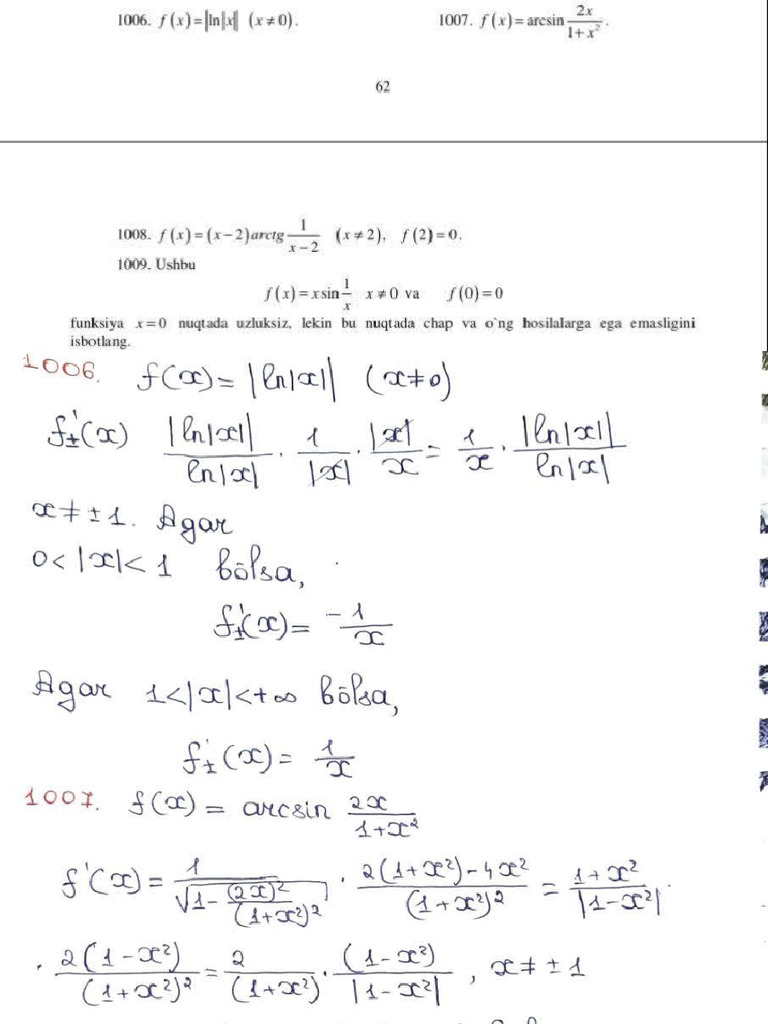 1006. f(x)=|ln|x|| (x≠0). 1007. f(x)=arcsin 2x/(1+x²).
62
1008. f(x)=(x−2)arctg 1/(x−2) (x≠2), f(2)=0.
1009. Ushbu
f(x)=x sin 1/x x≠0 va f(0)=0
funksiya x=0 nuqtada uzluksiz, lekin bu nuqtada chap va o`ng hosilalarga ega emasligini
isbotlang.
1006. f(x)=|ln|x|| (x≠0)
f'±(x) |ln|x||/ln|x| · 1/|x| · |x|/x = 1/x · |ln|x||/ln|x|
x≠±1. Agar
0<|x|<1 bōlsa,
f'±(x)= −1/x
Agar 1<|x|<+∞ bōlsa,
f'±(x)= 1/x
1007. f(x)= arcsin 2x/(1+x²)
f'(x)= 1/√(1−(2x)²/(1+x²)²) · (2(1+x²)−4x²)/(1+x²)² = (1+x²)/|1−x²| ·
· 2(1−x²)/(1+x²)² = 2/(1+x²) · (1−x²)/|1−x²|, x≠±1